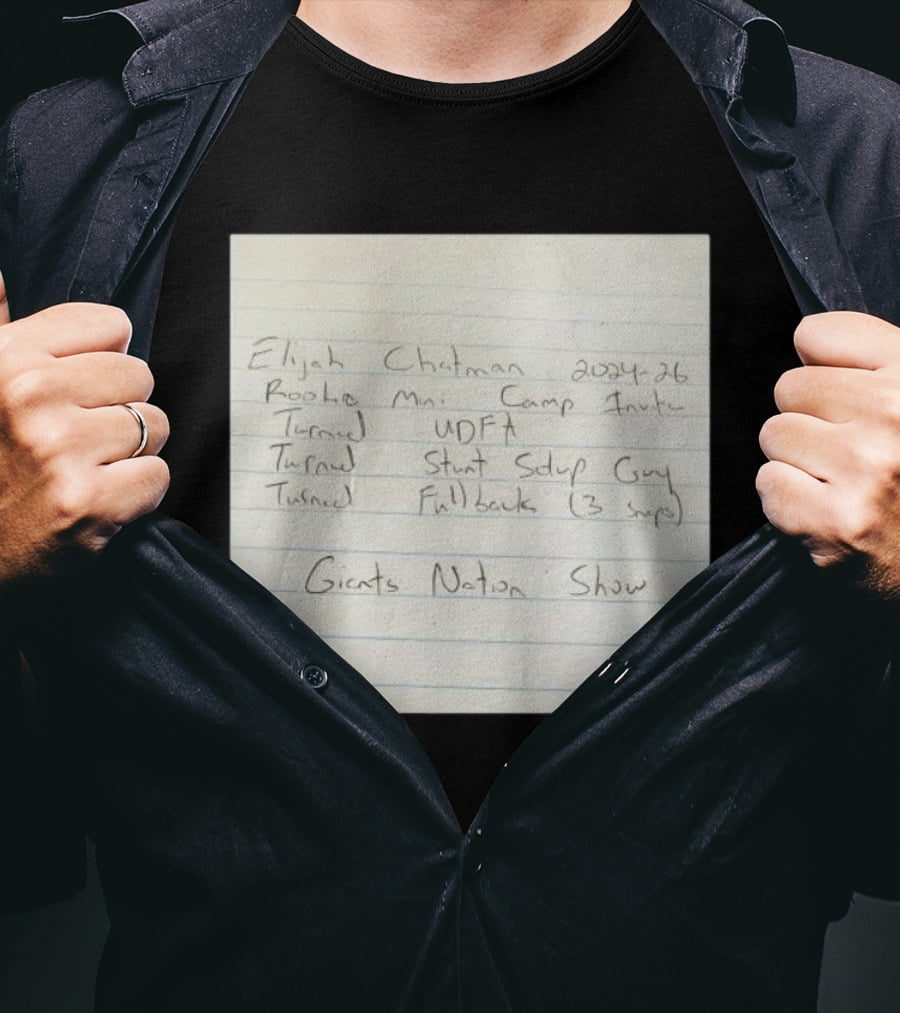 Elijah Chatman 2024-26
Rookie Mini Camp Invite
Turned UDFA
Turned Stunt Setup Guy
Turned Fullback (3 snaps)
Giants Nation Show